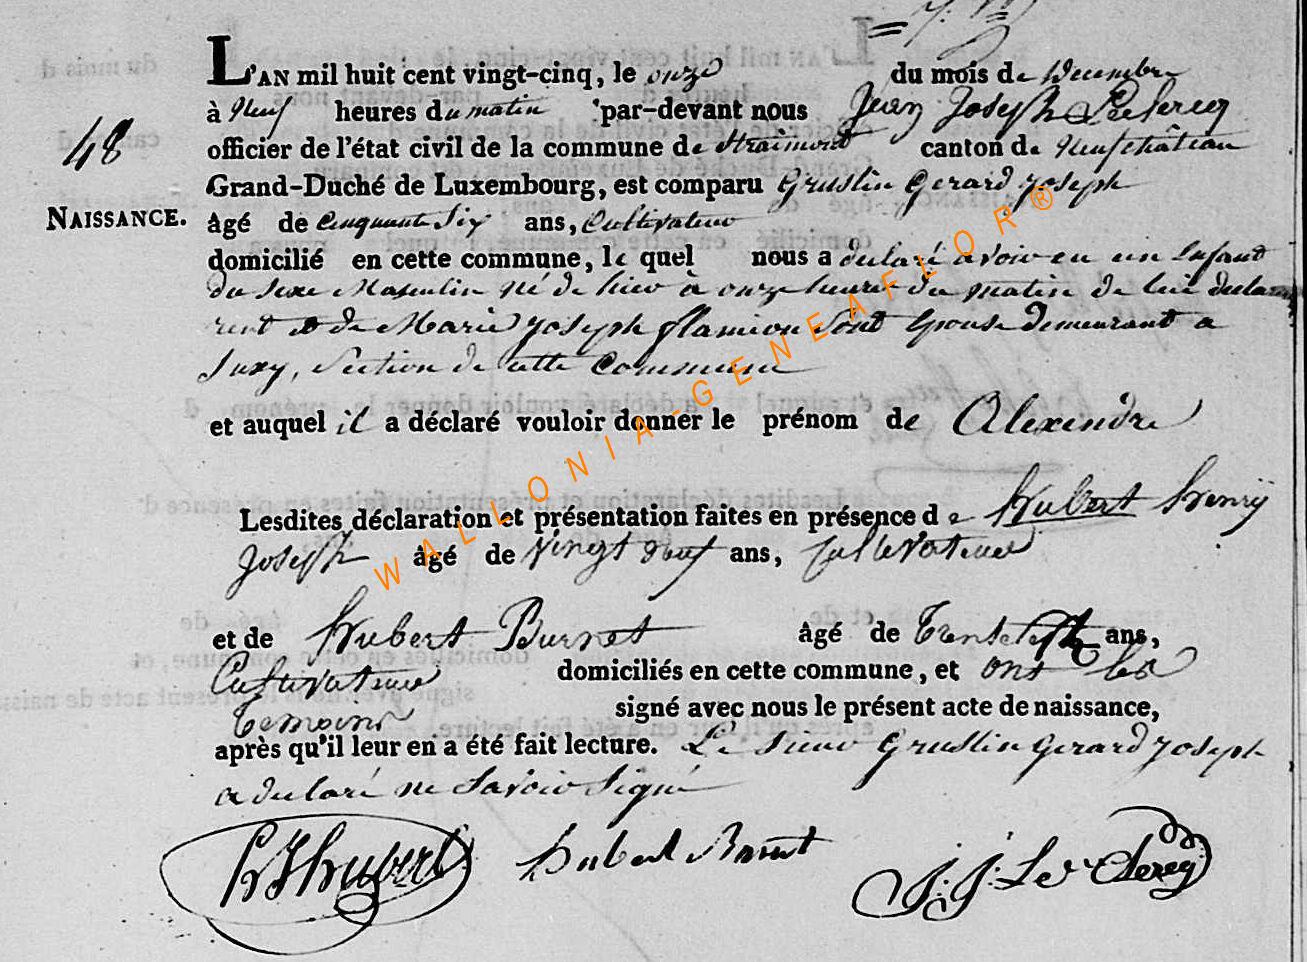 L'AN mil huit cent vingt-cinq, le onze du mois de Decembre
à Neuf heures du matin par-devant nous Jean Joseph Leclercq
48
officier de l'état civil de la commune de Straimont canton de Neufchâteau
Grand-Duché de Luxembourg, est comparu Gruslin Gerard Joseph
NAISSANCE.
âgé de Cinquante Six ans, Cultivateur
domicilié en cette commune, le quel nous a declaré avoir eu un Enfant
du Sexe Masculin né de hier à onze heures du matin de lui decla
rent et de Marie Joseph flamion Son Epouse demeurant a
Suxy, Section de cette Commune
et auquel il a déclaré vouloir donner le prénom de Alexendre
Lesdites déclaration et présentation faites en présence de Hubert Henry
Joseph âgé de Vingt neuf ans, Cultivateur
et de Hubert Burnet âgé de Trente Sept ans,
Cultivateur domiciliés en cette commune, et ont les
Temoins signé avec nous le présent acte de naissance,
après qu'il leur en a été fait lecture. Le Sieur Gruslin Gerard Joseph
a declaré ne Savoir Signé
HJHubert Hubert Burnet J: J: Le Clercq
WALLONIA-GENEAFLOR®